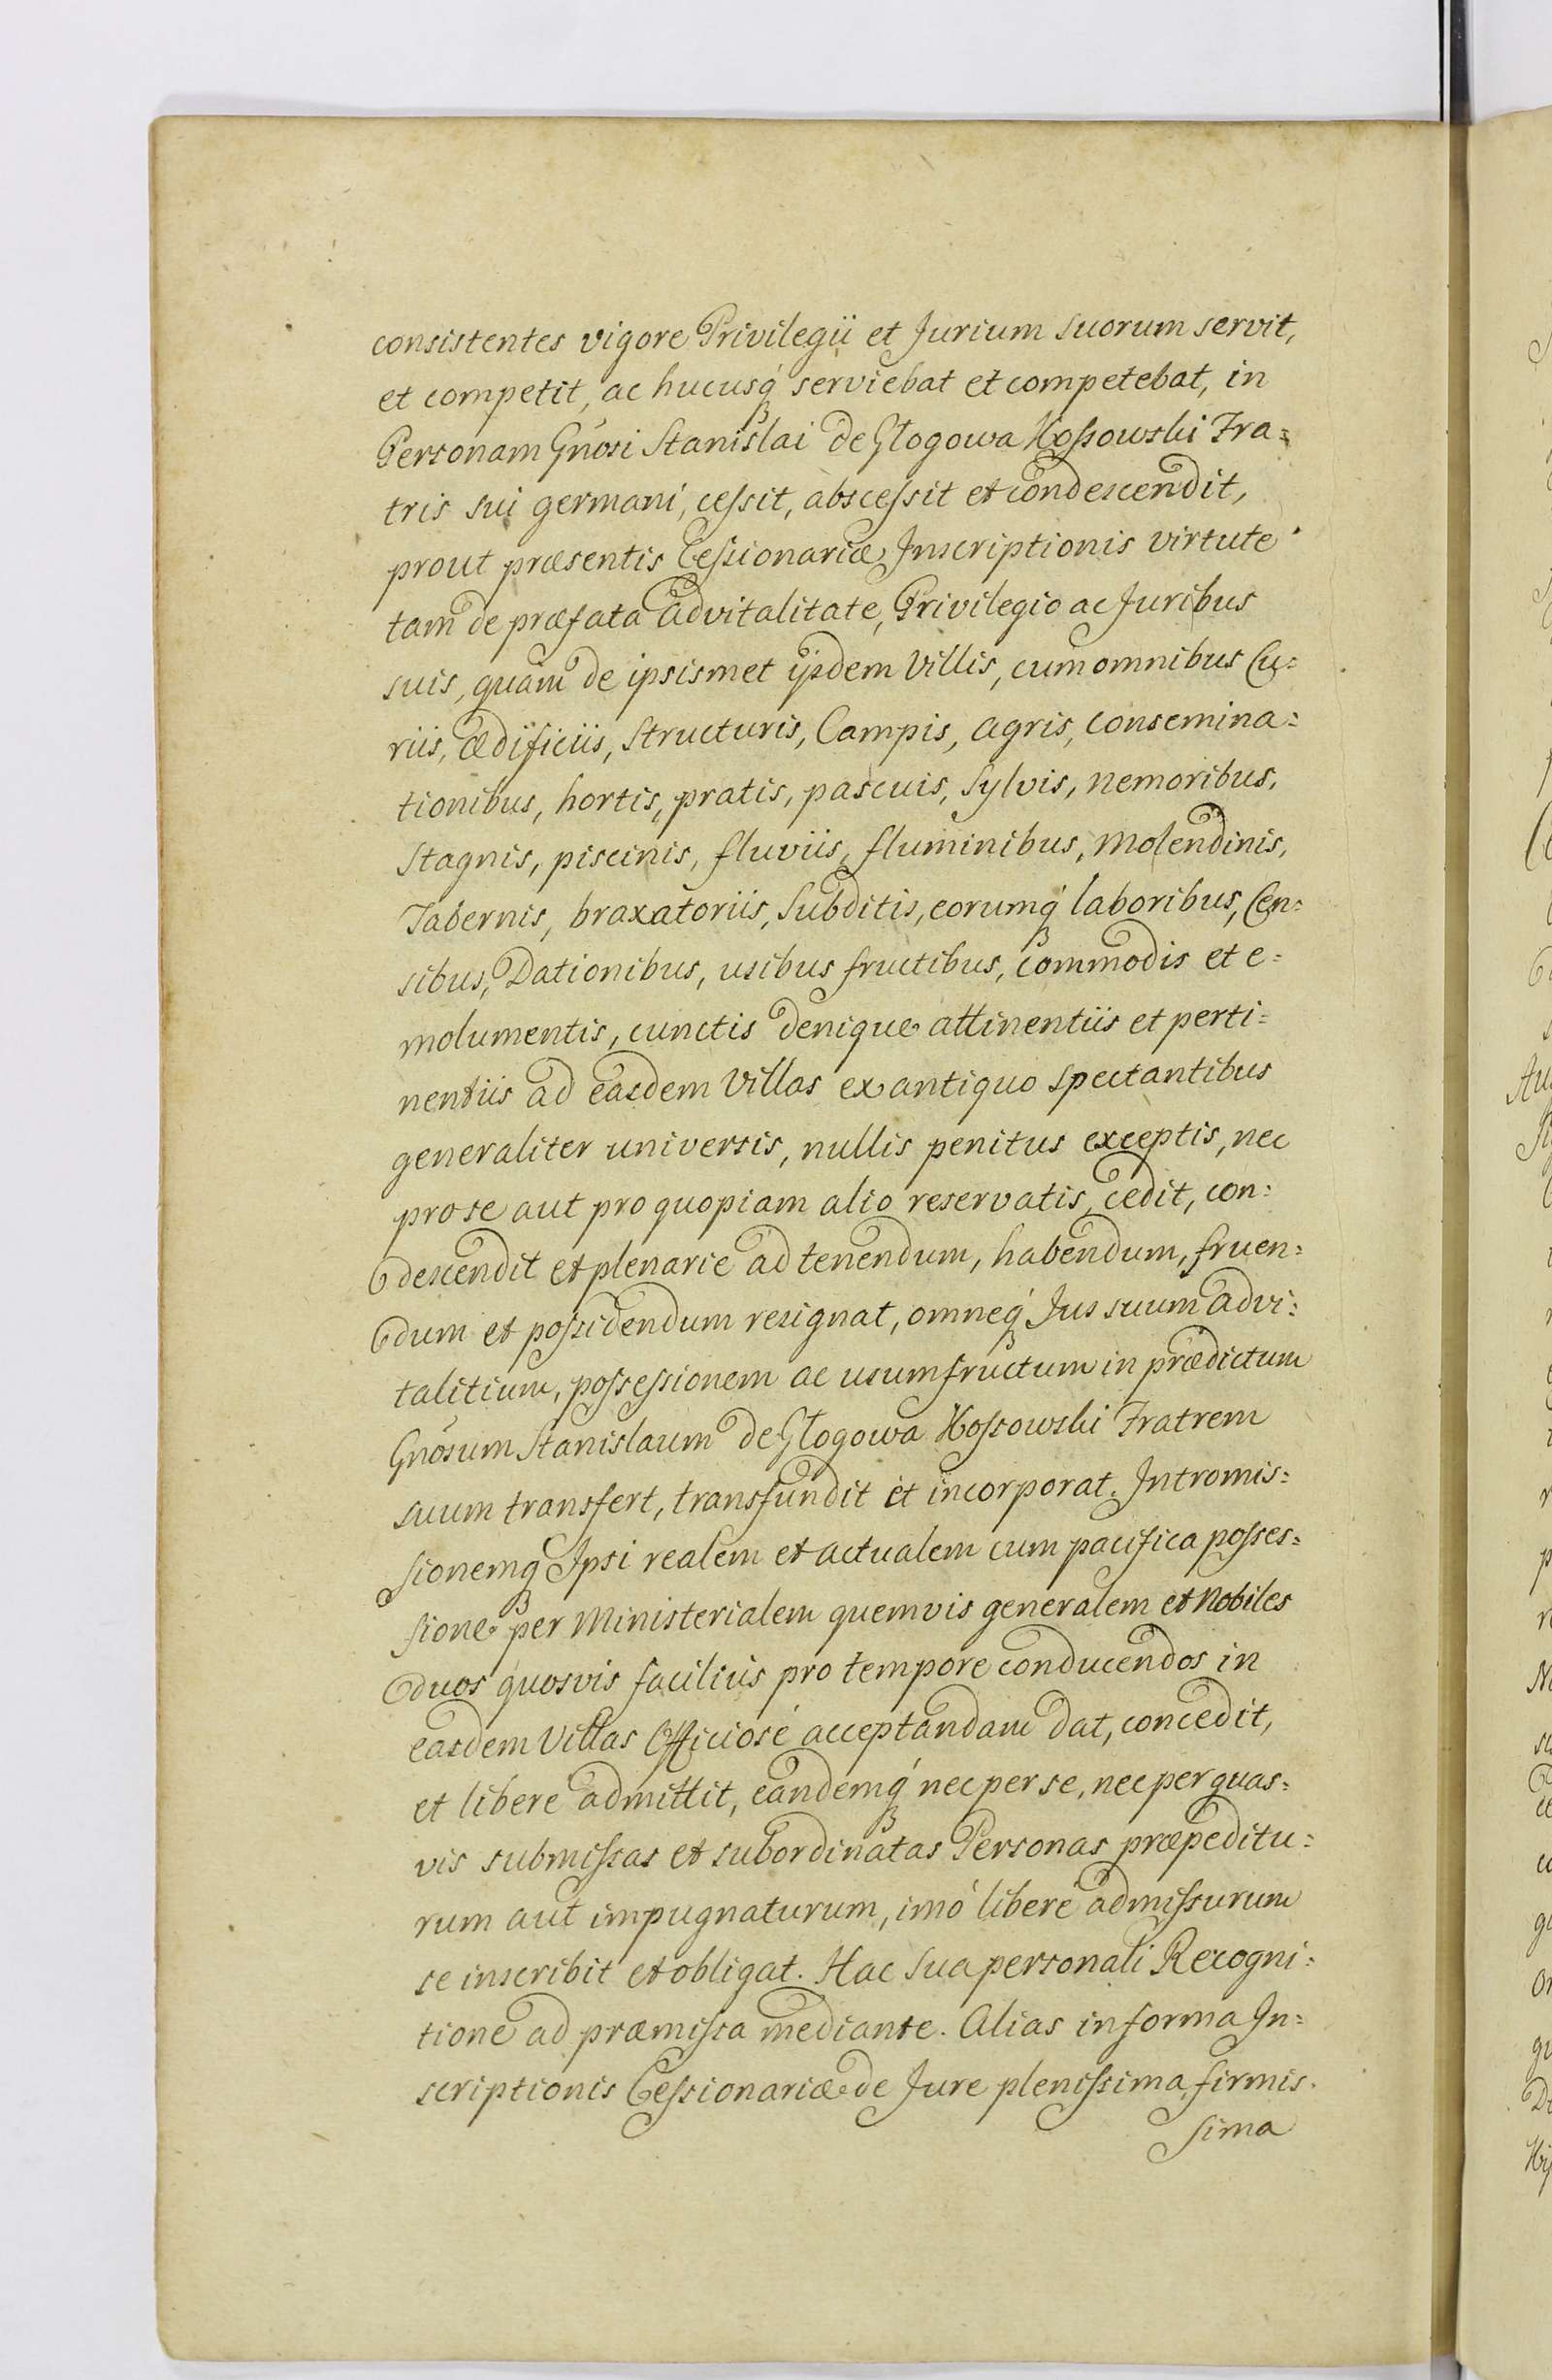 consistentes vigore Privilegii et Jurium suorum servit,
et competit, ac hucusq́ serviebat et competebat, in
Personam Gnosi Stanislai de Głogowa Kossowski Fra=
tris sui germani, cessit, abscessit et condescendit,
prout præsentis Cessionariæ Inscriptionis virtute
tam de præfata advitalitate, Privilegio ac Juribus
suis, quam de ipsismet ijsdem Villis, cum omnibus Cu=
riis, ædificiis, structuris, Campis, agris, consemina=
tionibus, hortis, pratis, pascuis, sylvis, nemoribus,
stagnis, piscinis, fluviis, fluminibus, molendinis,
Tabernis, braxatoriis, subditis, eorumq́ laboribus, Cen=
sibus, Dationibus, usibus fructibus, commodis et e=
molumentis, cunctis denique attinentiis et perti=
nentiis ad easdem Villas ex antiquo spectantibus
generaliter universis, nullis penitus exceptis, nec
pro se aut pro quopiam alio reservatis, cedit, con=
descendit et plenarie ad tenendum, habendum, fruen=
dum et possidendum resignat, omneq́ Jus suum advi=
talitium, possessionem ac usumfructum in prædictum
Gnosum Stanislaum de Głogowa Kossowski Fratrem
suum transfert, transfundit et incorporat. Intromis=
sionemq́ Ipsi realem et actualem cum pacifica posses=
sione per Ministerialem quemvis generalem et Nobiles
duos quosvis facilius pro tempore conducendos in
easdem Villas Officiosé acceptandam dat, concedit,
et libere admittit, eandemq́ nec per se, nec per quas=
vis submissas et subordinatas Personas præpeditu=
rum aut impugnaturum, imó liberé admissurum
se inscribit et obligat. Hac sua personali Recogni=
tione ad præmissa mediante. Alias in forma In=
scriptionis Cessionariæ de Jure plenissima, firmis.
sima